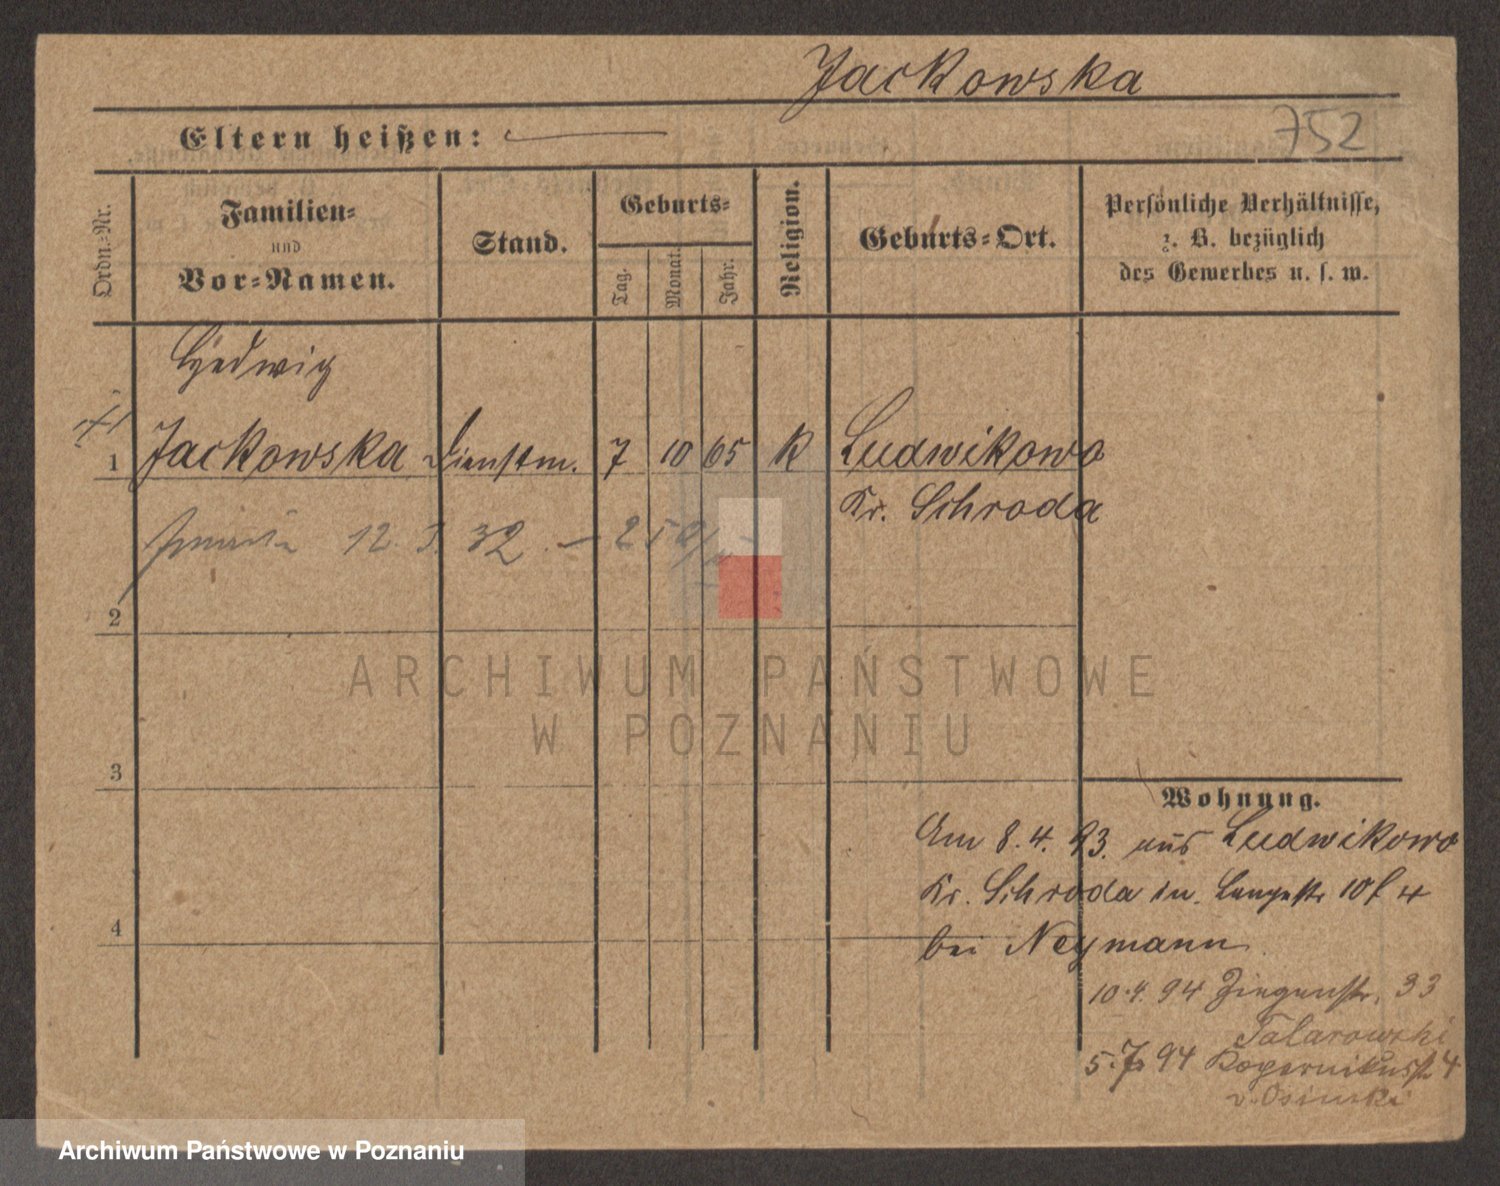 Jackowska
752
Eltern heißen:
Ordn.=Nr.
Familien=
und
Vor=Namen.
Stand.
Geburts=
Tag.
Monat.
Jahr.
Religion.
Geburts=Ort.
Persönliche Verhältnisse,
z. B. bezüglich
des Gewerbes u. s. w.
Hedwig
1 Jackowska Dienstm. 7 10 65 K Ludwikowo
Kr. Schroda
12. 3. 32
2
ARCHIWUM PAŃSTWOWE
W POZNANIU
3
Wohnung.
Am 8. 4. 93. aus Ludwikowo
Kr. Schroda in. Langestr 10 4
4
bei Neymann
10. 4. 94 Ziegenstr. 33
Talarowski
5. 7. 94 Kopernikusstr 4
v. Osinski
Archiwum Państwowe w Poznaniu